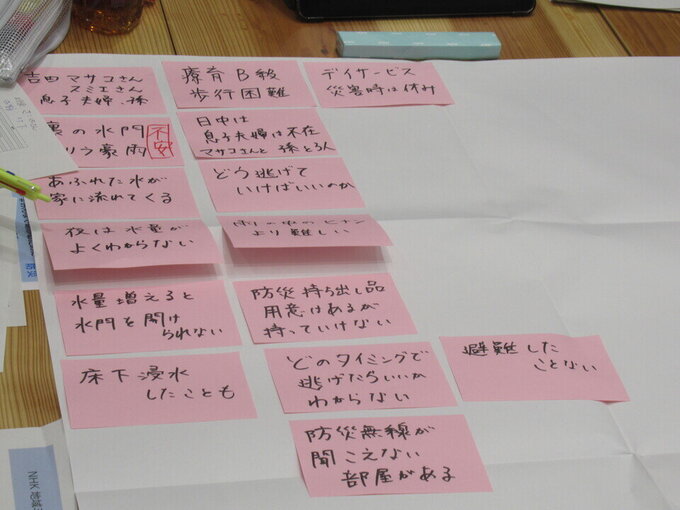 吉田マサコさん
スミエさん
息子夫婦、孫
療育B級
歩行困難
デイサービス
災害時は休み
裏の水門
ゲリラ豪雨
不安
日中は
息子夫婦は不在
マサコさんと孫と3人
あふれた水が
家に流れてくる
どう逃げて
いけばいいのか
夜は水量が
よくわからない
より難しい
水量増えると
水門を開け
られない
防災持ち出し品
用意はあるが
持っていけない
床下浸水
したことも
どのタイミングで
逃げたらいいか
わからない
避難した
ことない
防災無線が
聞こえない
部屋がある
NHK 地域